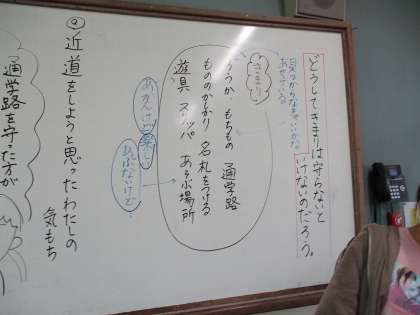 どうしてきまりは守らないと
いけないのだろう。
見つからなきゃいいかな
きまり
ろうか もちもの 通学路
もののかかり 名札をつける
遊具 スリッパ あそぶ場所
あかんけど楽し
あぶないけど…
② 近道をしようと思ったわたしの
気もち
通学路を守った方が